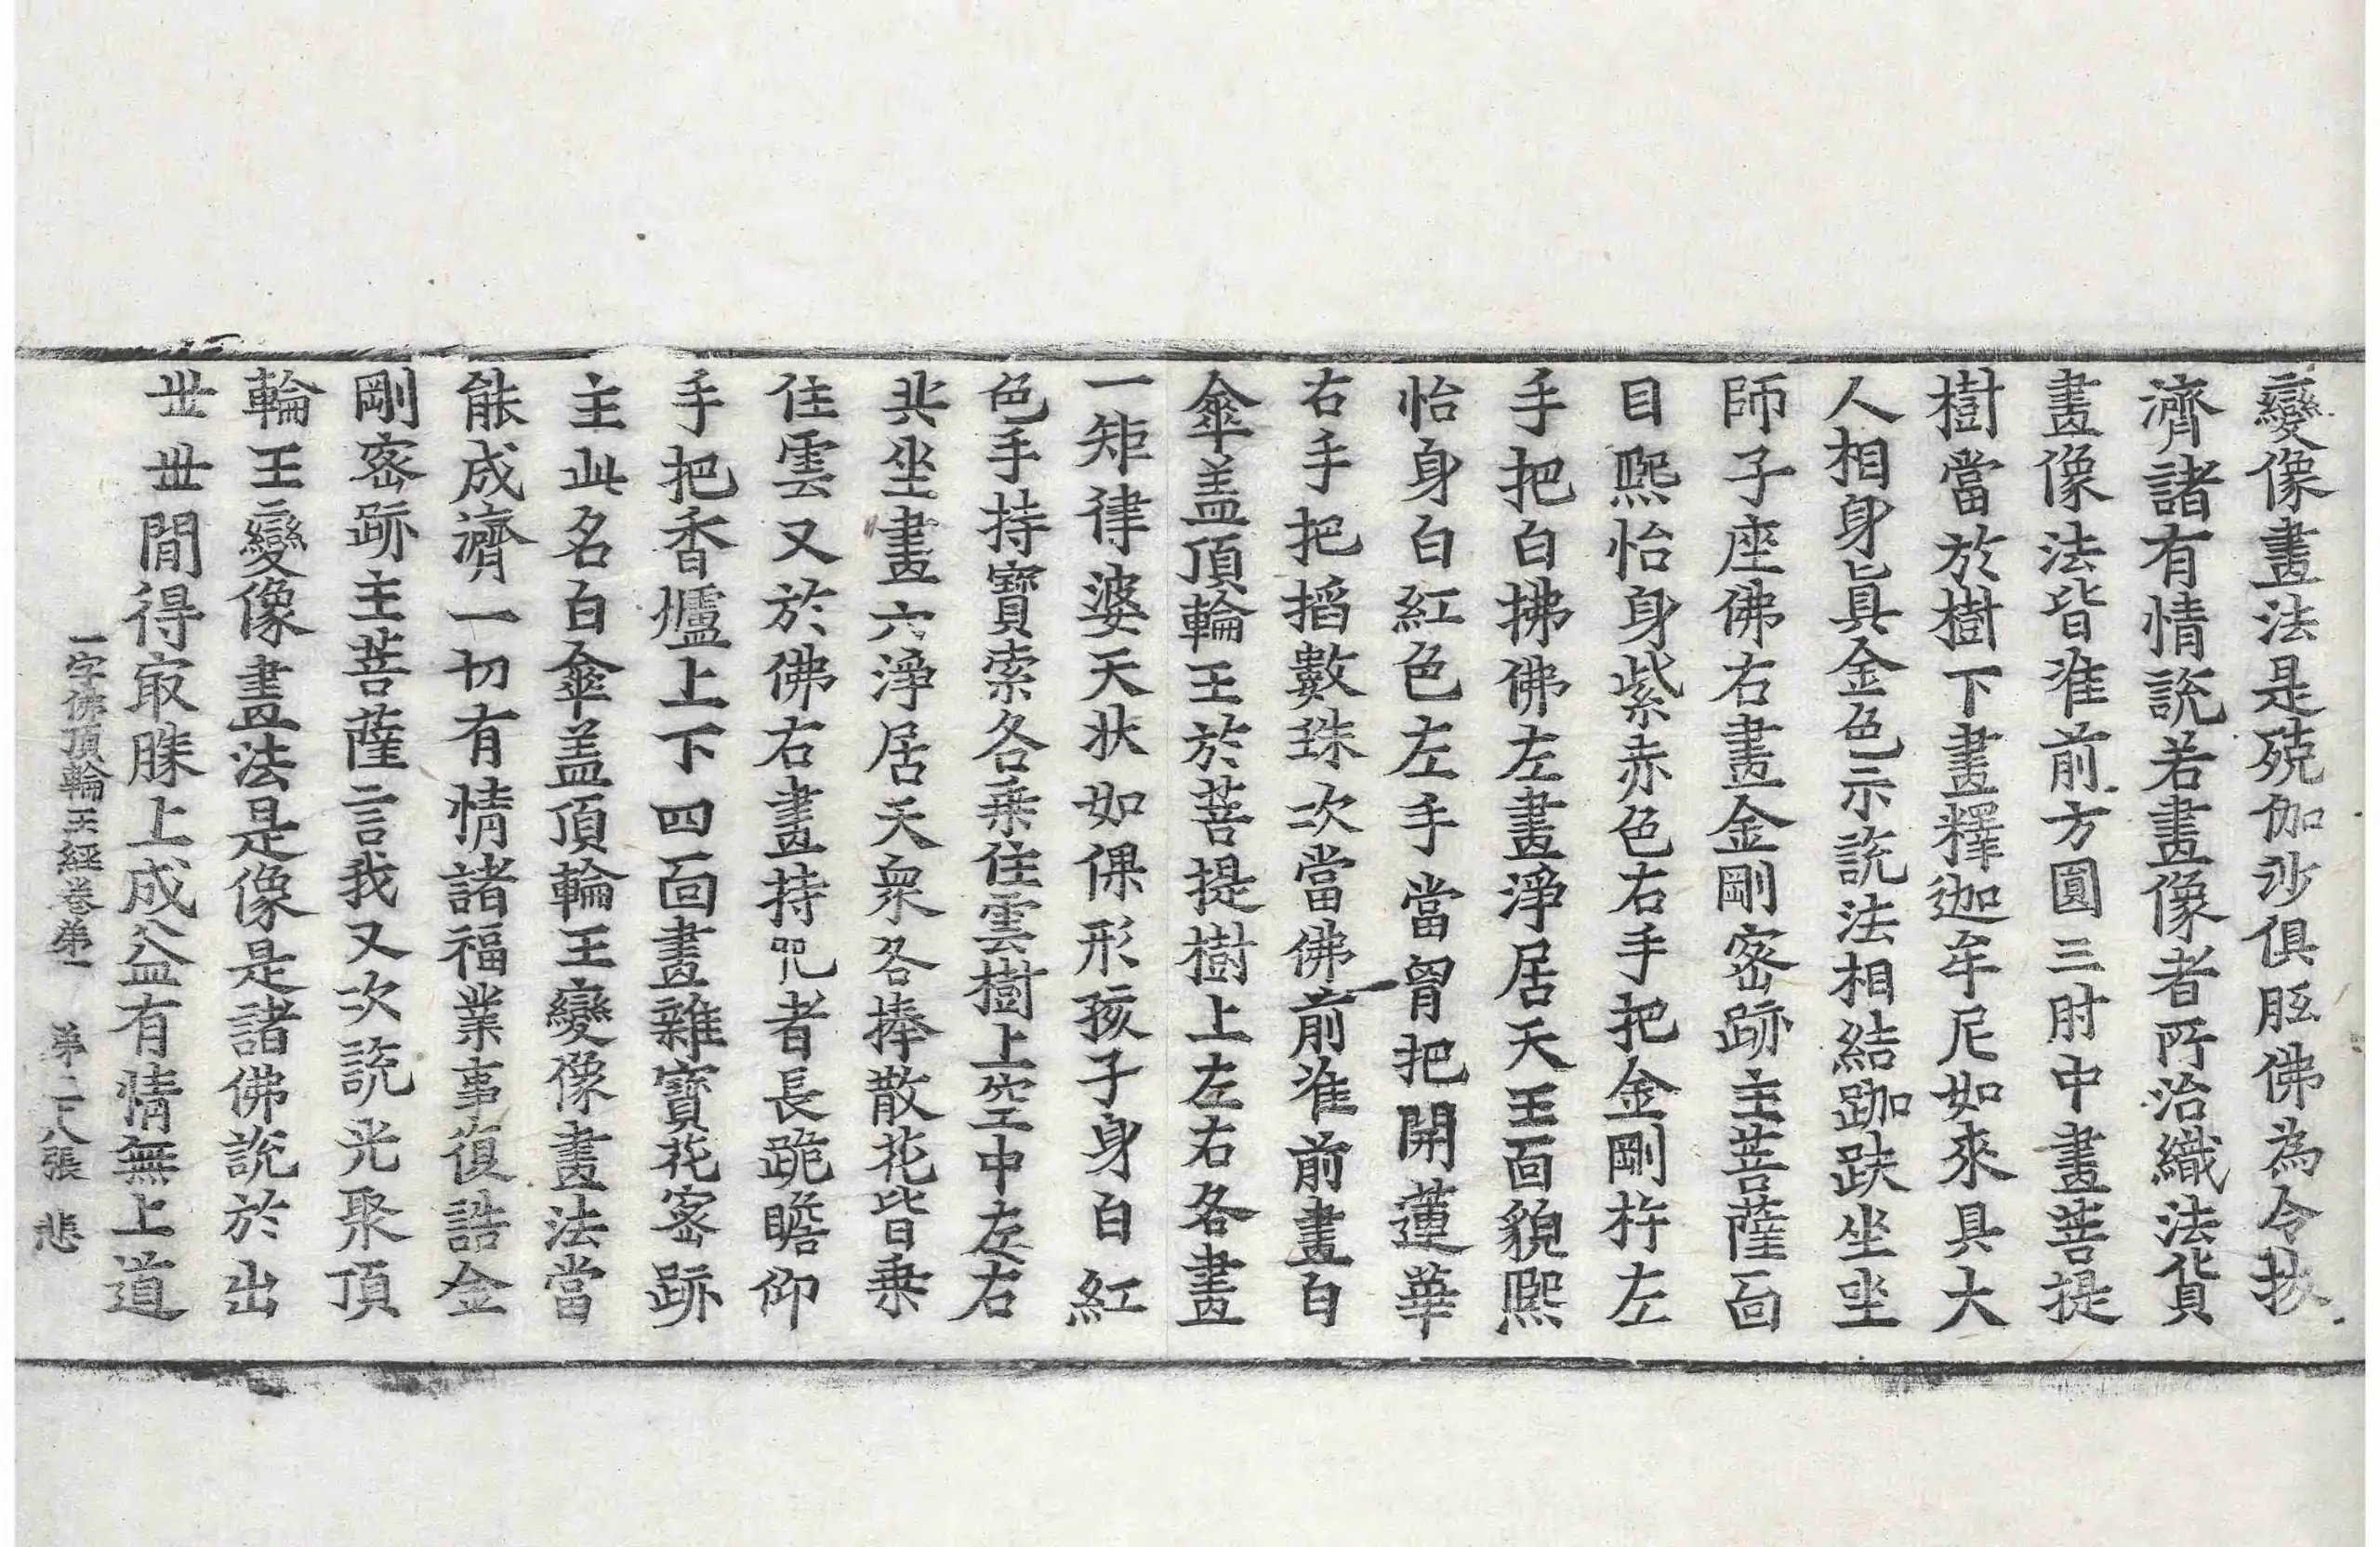 變像畫法是殑伽沙俱胝佛為令拔
濟諸有情說若畫像者所治織法貨
畫像法皆准前方圓三肘中畫菩提
樹當於樹下畫釋迦牟尼如來具大
人相身真金色示說法相結跏趺坐坐
師子座佛右畫金剛密跡主菩薩面
目熙怡身紫赤色右手把金剛杵左
手把白拂佛左畫淨居天王面貌熙
怡身白紅色左手當胷把開蓮華
右手把搯數珠次當佛前准前畫白
傘盖頂輪王於菩提樹上左右各畫
一矩律婆天狀如倮形孩子身白紅
色手持寶索各乘住雲樹上空中左右
共坐畫六淨居天衆各捧散花皆乘
住雲又於佛右畫持呪者長跪瞻仰
手把香爐上下四面畫雜寶花密跡
主此名白傘盖頂輪王變像畫法當
能成濟一切有情諸福業事復誥金
剛密跡主菩薩言我又次說光聚頂
輪王變像畫法是像是諸佛說於出
世世間得最勝上成益有情無上道
一字佛頂輪王經卷第一 第二十八張 悲